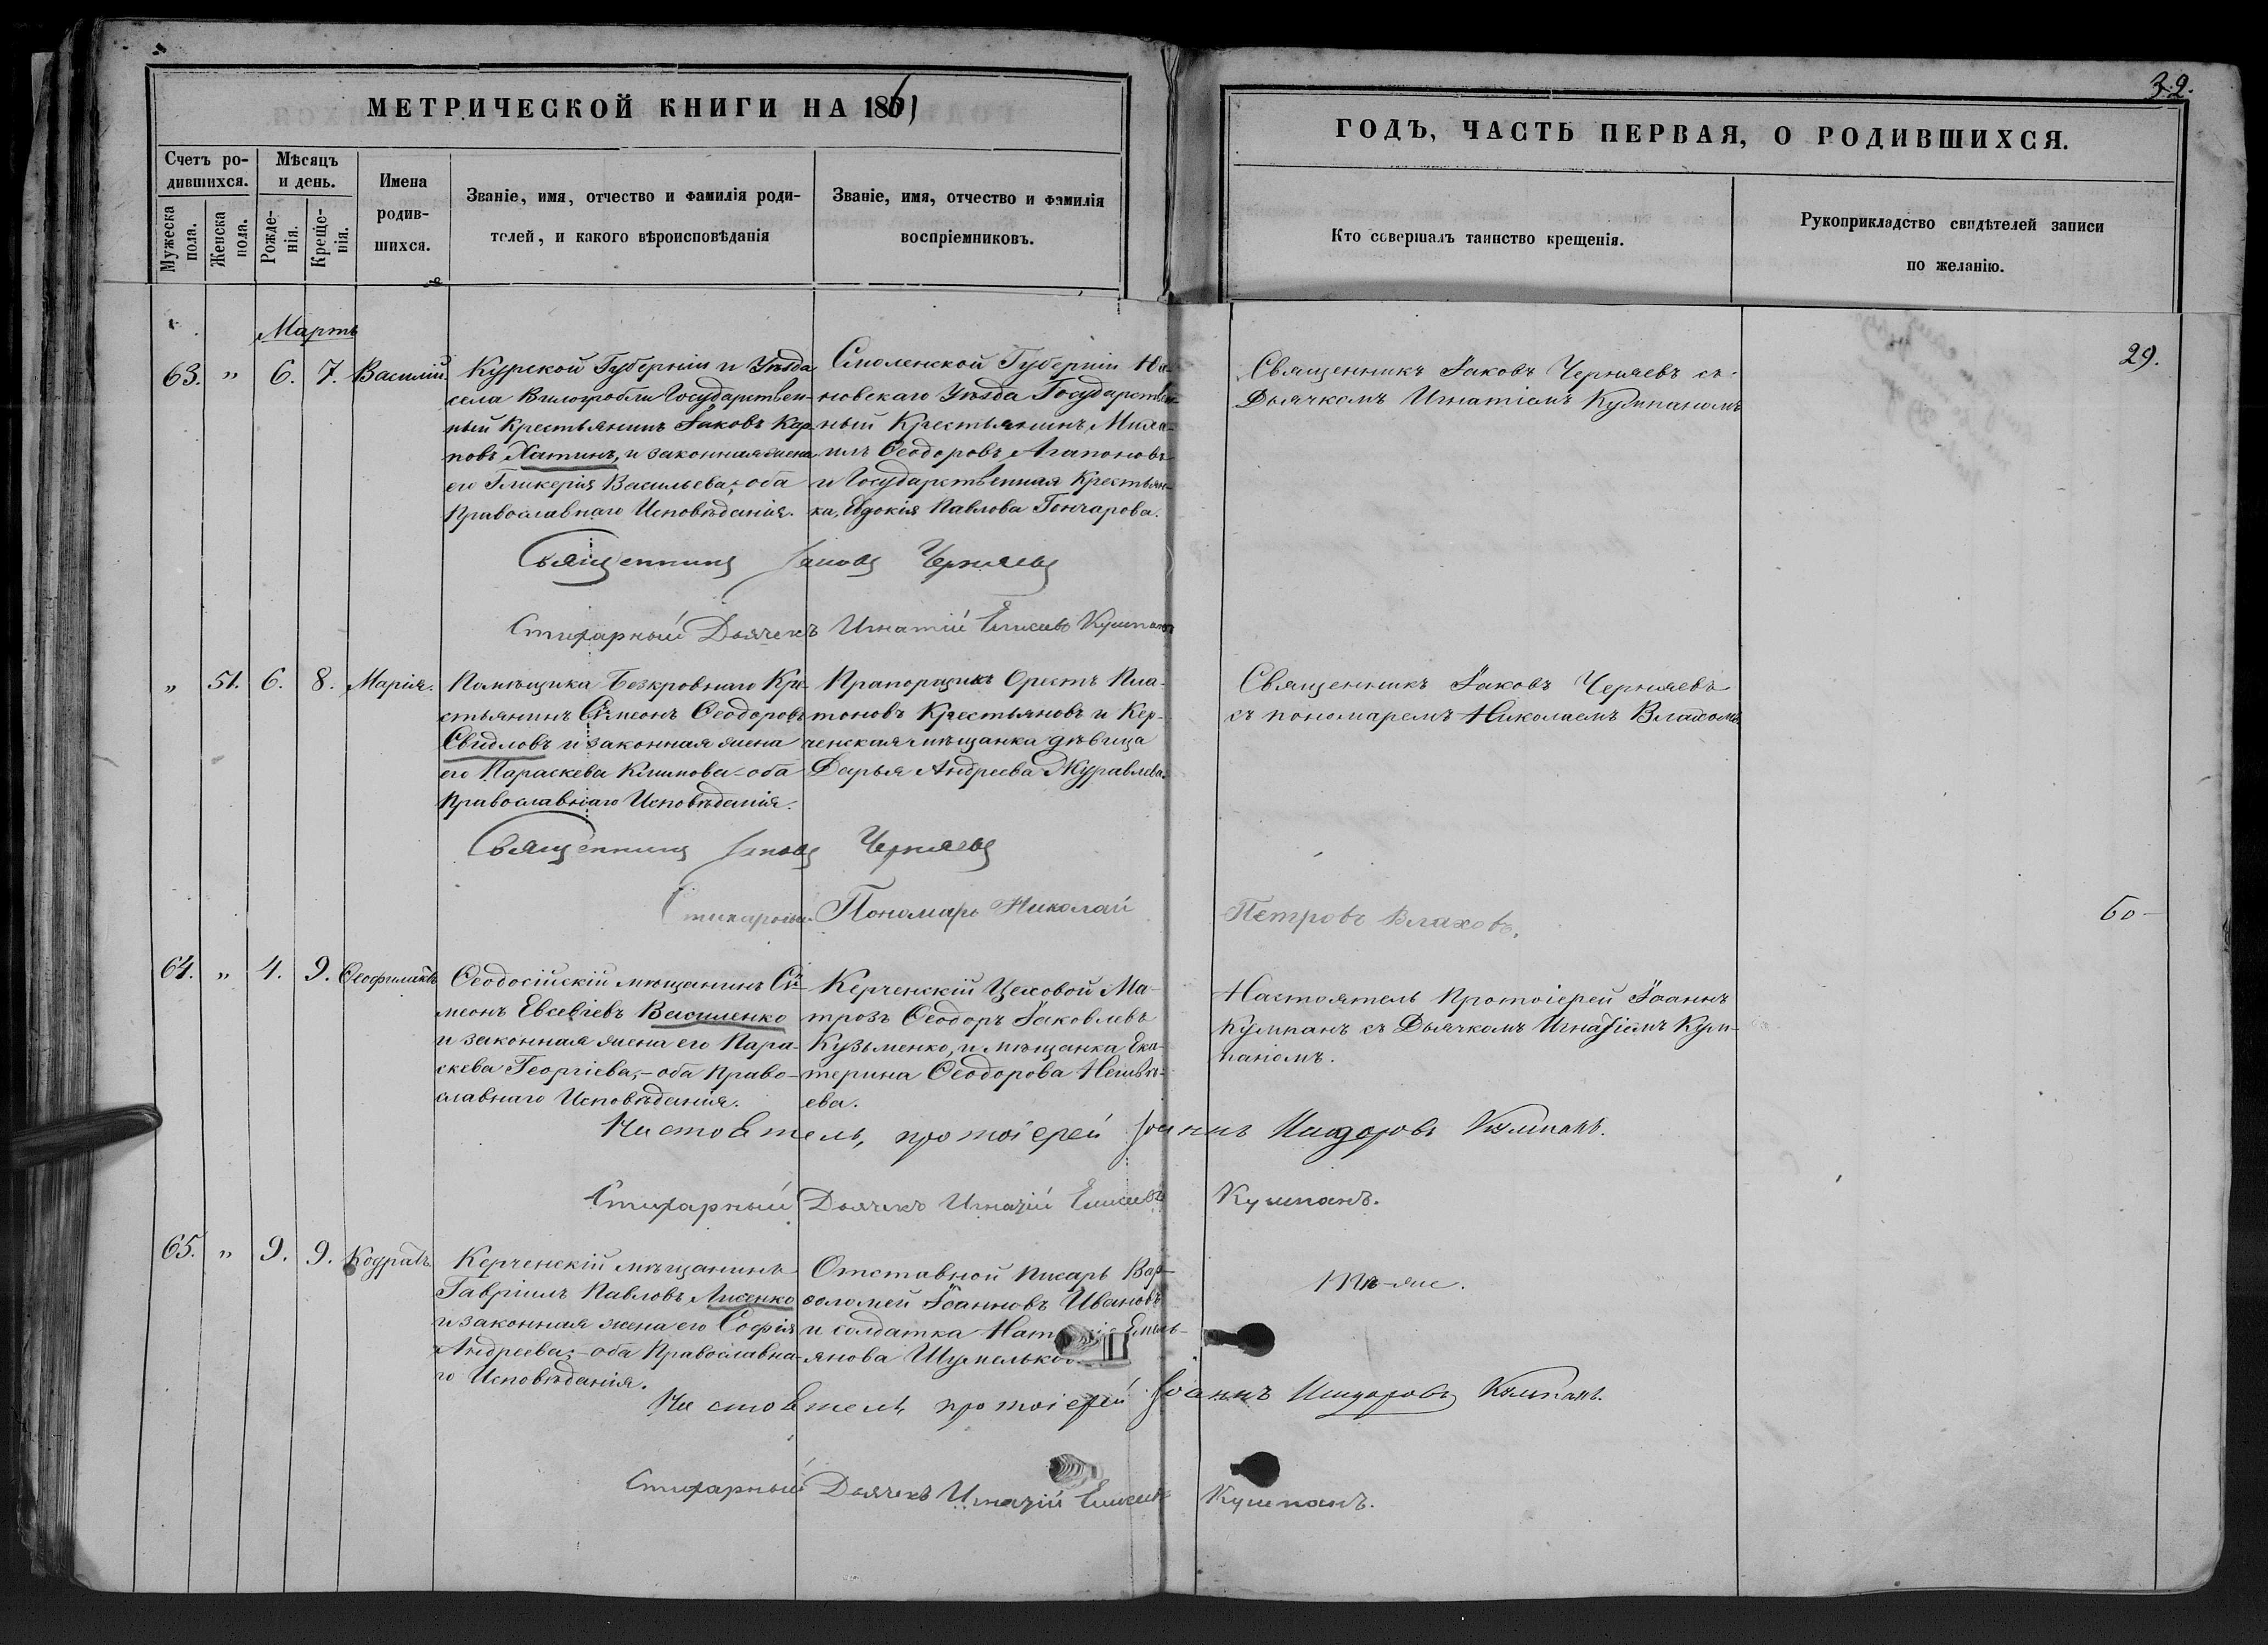 МЕТРИЧЕСКОЙ КНИГИ НА 1861
ГОДЪ, ЧАСТЬ ПЕРВАЯ, О РОДИВШИХСЯ.
32.
Счетъ ро-
дившихся.
Мужеска
пола.
Женска
пола.
Мѣсяцъ
и день.
Рожде-
нія.
Креще-
нія.
Имена
родив-
шихся.
Званіе, имя, отчество и фамилія роди-
телей, и какого вѣроисповѣданія
Званіе, имя, отчество и фамилія
воспріемниковъ.
Кто совершалъ таинство крещенія.
Рукоприкладство свидѣтелей записи
по желанію.
Мартъ
63. " 6. 7. Василій.
Курской Губерніи и Уѣзда
села Государствен-
ный Крестьянинъ Іаковъ Кар-
повъ Хатинъ, и законная жена
его Гликерія Васильева, оба
Православнаго Исповѣданія.
Смоленской Губерніи Юх-
новскаго Уѣзда Государствен-
ный Крестьянинъ Миха-
илъ Ѳеодоровъ Агапоновъ
и Государственная Крестьян-
ка, Евдокія Павлова Гончарова.
Священникъ Іаковъ Черняевъ съ
Дьячкомъ Игнатіемъ Кумпаномъ
29.
Священникъ Іаковъ Черняевъ
Стихарный Дьячекъ Игнатій Елисеевъ Кумпанъ
" 51. 6. 8. Марія.
Помѣщика Безкровнаго Кре-
стьянинъ Сѵмеонъ Ѳеодоровъ
Свидловъ и законная жена
его Параскева Климова - оба
Православнаго Исповѣданія.
Прапорщикъ Орестъ Пла-
тоновъ Крестьяновъ и Кер-
ченская мѣщанка дѣвица
Дарья Андреева Журавлева.
Священникъ Іаковъ Черняевъ
съ пономаремъ Николаемъ Влаховымъ
Священникъ Іаковъ Черняевъ
Стихарный Пономарь Николай Петровъ Влаховъ.
60
64. " 4. 9. Ѳеофилактъ
Ѳеодосійскій мѣщанинъ Сѵ-
меонъ Евсевіевъ Василенко
и законная жена его Пара-
скева Георгіева, - оба Право-
славнаго Исповѣданія.
Керченскій Цеховой Ма-
трозъ Ѳеодоръ Іаковлевъ
Кузьменко, и мѣщанка Ека-
терина Ѳеодорова
ева.
Настоятель Протоіерей Іоаннъ
Кумпанъ съ Дьячкомъ Игнатіемъ Кум-
паномъ.
Настоятель, протоіерей Іоаннъ Исидоровъ Кумпанъ.
Стихарный Дьячекъ Игнатій Елисеевъ Кумпанъ.
65. " 9. 9. Кодратъ.
Керченскій мѣщанинъ
Гавріилъ Павловъ Лисенко
и законная жена его Софія
Андреева; - оба Православна-
го Исповѣданія.
Отставной писарь Вар-
ѳоломей Іоанновъ Ивановъ
и солдатка Емель-
янова
Тѣ-же.
Настоятель протоіерей Іоаннъ Исидоровъ Кумпанъ.
Стихарный Дьячекъ Игнатій Елисеевъ Кумпанъ.